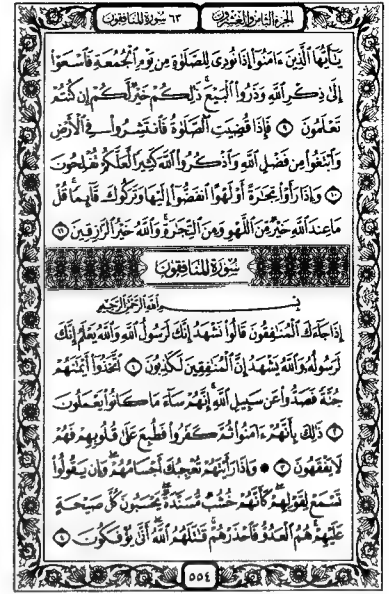 الجزء الثامن والعشرون
٦٣ سورة المنافقون
يَٰٓأَيُّهَا ٱلَّذِينَ ءَامَنُوٓا۟ إِذَا نُودِىَ لِلصَّلَوٰةِ مِن يَوْمِ ٱلْجُمُعَةِ فَٱسْعَوْا۟
إِلَىٰ ذِكْرِ ٱللَّهِ وَذَرُوا۟ ٱلْبَيْعَ ذَٰلِكُمْ خَيْرٌ لَّكُمْ إِن كُنتُمْ
تَعْلَمُونَ ٩ فَإِذَا قُضِيَتِ ٱلصَّلَوٰةُ فَٱنتَشِرُوا۟ فِى ٱلْأَرْضِ
وَٱبْتَغُوا۟ مِن فَضْلِ ٱللَّهِ وَٱذْكُرُوا۟ ٱللَّهَ كَثِيرًا لَّعَلَّكُمْ تُفْلِحُونَ
١٠ وَإِذَا رَأَوْا۟ تِجَٰرَةً أَوْ لَهْوًا ٱنفَضُّوٓا۟ إِلَيْهَا وَتَرَكُوكَ قَآئِمًا قُلْ
مَا عِندَ ٱللَّهِ خَيْرٌ مِّنَ ٱللَّهْوِ وَمِنَ ٱلتِّجَٰرَةِ وَٱللَّهُ خَيْرُ ٱلرَّٰزِقِينَ ١١
سورة المنافقون
بسم الله الرحمن الرحيم
إِذَا جَآءَكَ ٱلْمُنَٰفِقُونَ قَالُوا۟ نَشْهَدُ إِنَّكَ لَرَسُولُ ٱللَّهِ وَٱللَّهُ يَعْلَمُ إِنَّكَ
لَرَسُولُهُۥ وَٱللَّهُ يَشْهَدُ إِنَّ ٱلْمُنَٰفِقِينَ لَكَٰذِبُونَ ١ ٱتَّخَذُوٓا۟ أَيْمَٰنَهُمْ
جُنَّةً فَصَدُّوا۟ عَن سَبِيلِ ٱللَّهِ إِنَّهُمْ سَآءَ مَا كَانُوا۟ يَعْمَلُونَ
٢ ذَٰلِكَ بِأَنَّهُمْ ءَامَنُوا۟ ثُمَّ كَفَرُوا۟ فَطُبِعَ عَلَىٰ قُلُوبِهِمْ فَهُمْ
لَا يَفْقَهُونَ ٣ وَإِذَا رَأَيْتَهُمْ تُعْجِبُكَ أَجْسَامُهُمْ وَإِن يَقُولُوا۟
تَسْمَعْ لِقَوْلِهِمْ كَأَنَّهُمْ خُشُبٌ مُّسَنَّدَةٌ يَحْسَبُونَ كُلَّ صَيْحَةٍ
عَلَيْهِمْ هُمُ ٱلْعَدُوُّ فَٱحْذَرْهُمْ قَٰتَلَهُمُ ٱللَّهُ أَنَّىٰ يُؤْفَكُونَ ٤
٥٥٤